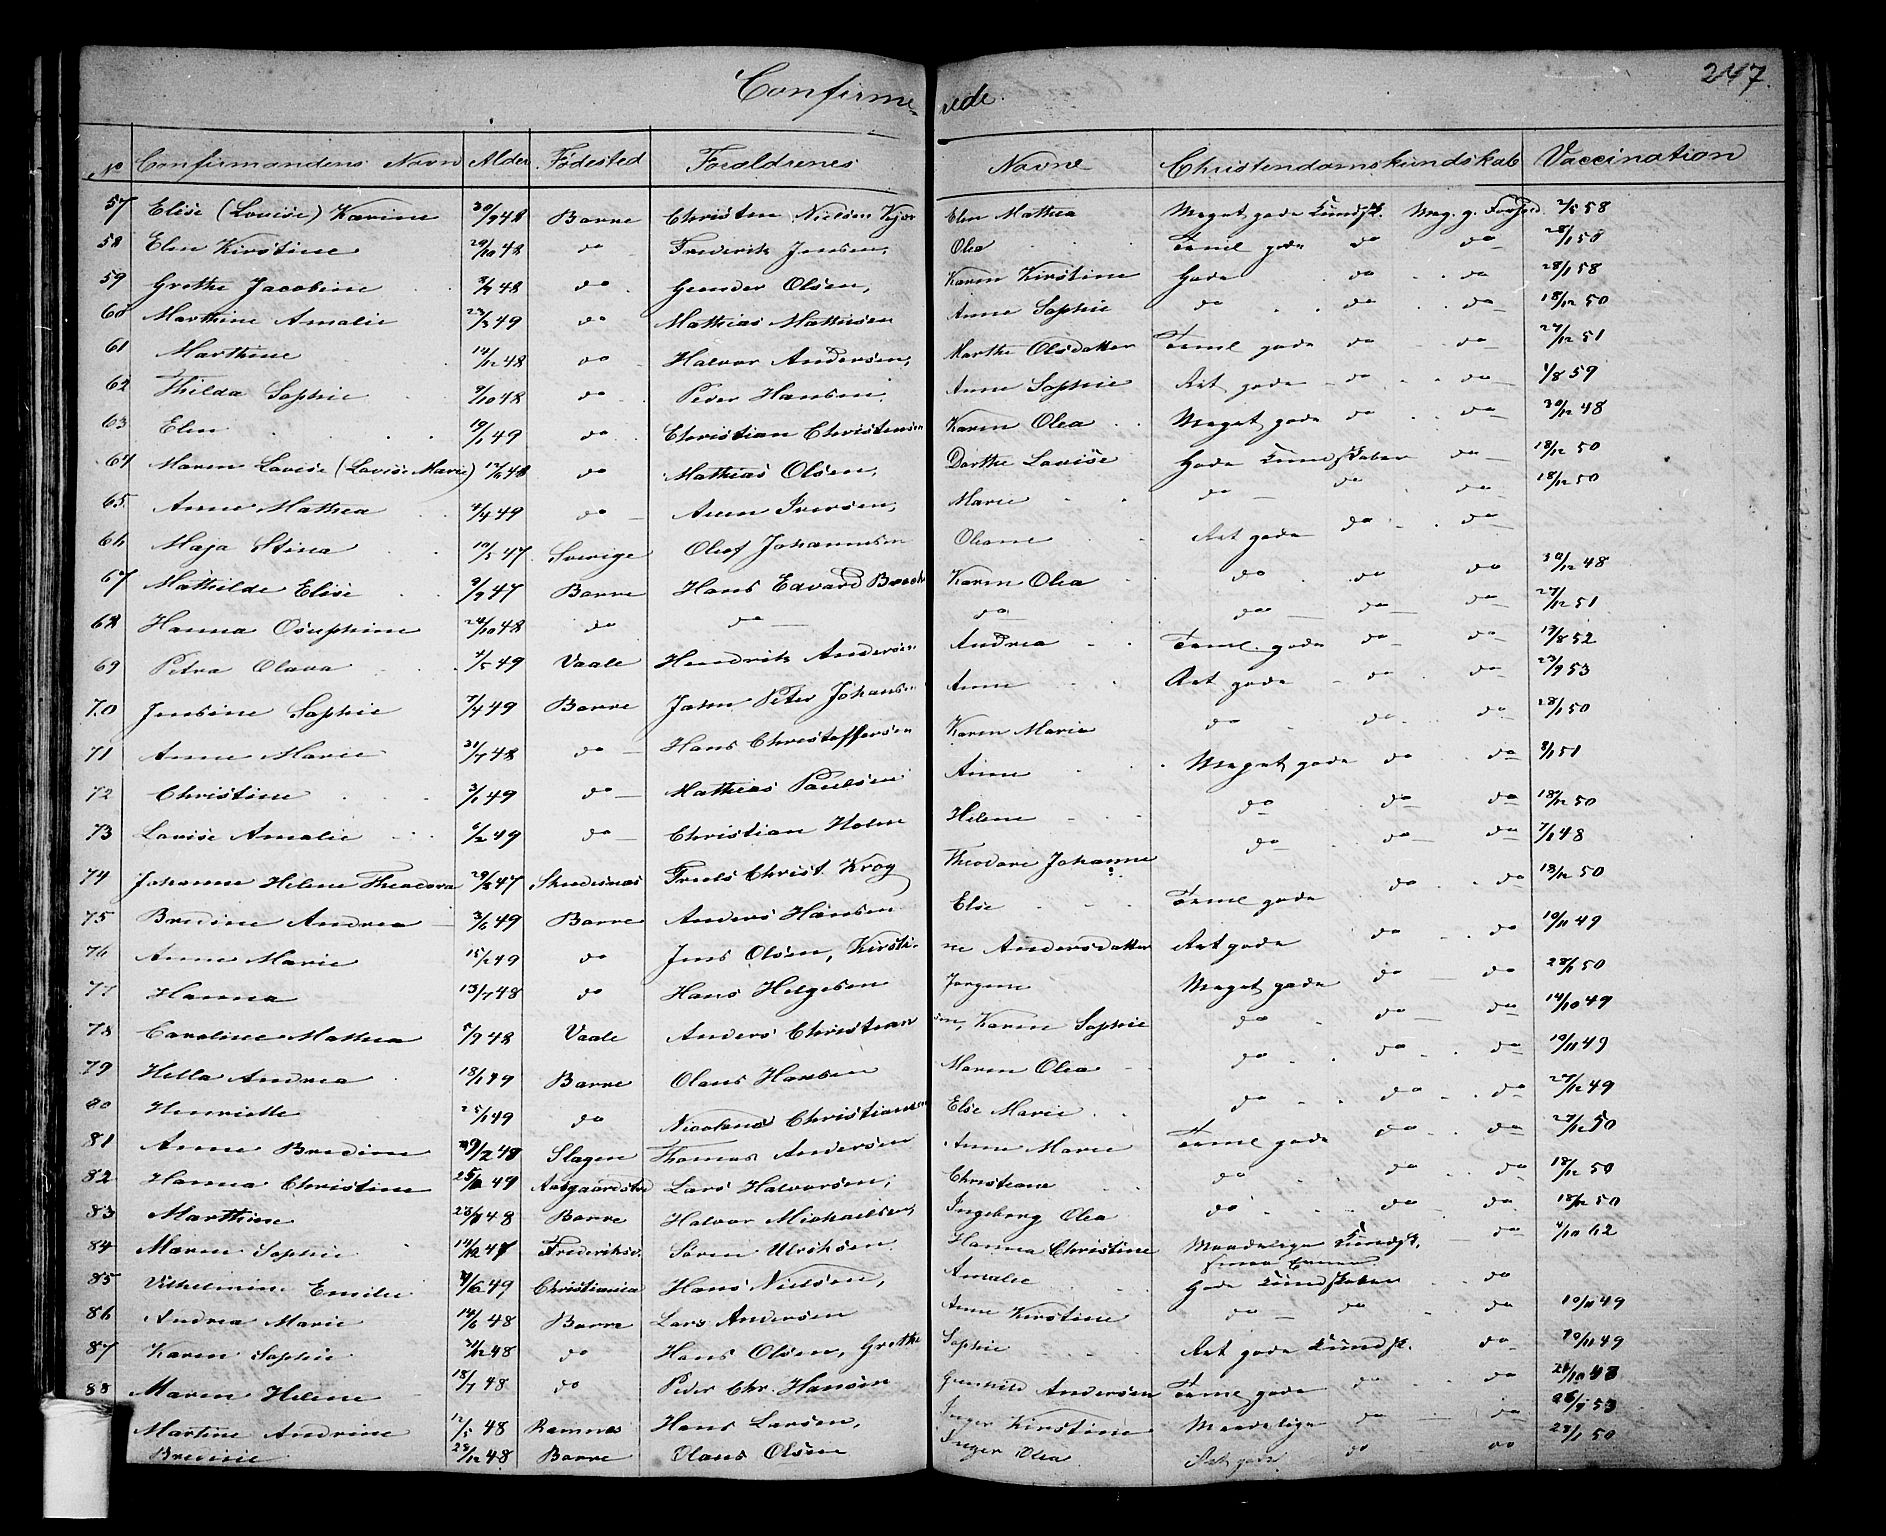 Confirmerede.
247.
No Confirmandens Navn Alder Fødested Forældrenes Navne Christendomskundskab Vaccination
57 Elise (Lovise) Karine 30/9 48 Borre Christen Nielsen Kjær Elen Mathea Meget gode Kundsk. Meg. g. Forhold 2/5 58
58 Elen Kirstine 29/10 48 do Frederik Jensen, Olea Teml gode do do 28/1 50
59 Grethe Jacobine 48 do Gunder Olsen, Karen Kirstine Gode do do 28/1 58
60 Marthine Amalie 23/3 49 do Mathias Mathisen Anne Sophie do do do 18/12 50
61 Marthine 14/12 48 do Halvor Andersen, Marthe Olsdatter Teml gode do do 27/12 51
62 Thilda Sophie 9/10 48 do Peder Hansen Anne Sophie Ret gode do do 1/8 59
63 Elen 19/1 49 do Christian Christensen Karen Olea Meget gode do do 30/12 48
64 Maren Lovise (Lovise Marie) 48 do Mathias Olsen, Dorthe Lovise Gode Kundskaber do 18/12 50
65 Anne Mathea 49 do Aren Iversen, Marie do do do 18/12 50
66 Maja Stina 10/5 47 Sverige Olof Johannesen Oleane Ret gode do do
67 Mathilde Elise 9/9 47 Borre Hans Edvard Karen Olea do do do 30/12 48
68 Hanna Osephine 28/10 48 do do do do do do 27/12 51
69 Petra Olava 4/5 49 Vaale Hendrik Andersen Andrea Teml. gode do do 19/8 52
70 Jensine Sophie 7/4 49 Borre John Peter Johansen Anne Ret gode do do 23/9 53
71 Anne Marie 31/7 48 do Hans Christoffersen Karen Maria do do do 28/1 50
72 Christine 3/1 49 do Mathias Paulsen Anne Meget gode do do 8/1 51
73 Lovise Amalie 6/2 49 do Christian Holm Helene do do do 18/12 50
74 Johanne Helene Theodora 29/8 47 Skudesnæs Truls Christ. Krog Theodore Johanne do do do 7/1 48
75 Bredine Andrea 3/6 49 Borre Anders Hansen Else Teml gode do do 18/12 50
76 Anne Marie 15/2 49 do Jens Olsen, Kirstine Andersdatter Ret gode do do 10/11 49
77 Hanna 13/7 48 do Hans Helgesen Jørgine Meget gode do do 28/1 50
78 Caroline Mathea 5/9 48 Vaale Anders Christiansen, Karen Sophie do do do 14/10 49
79 Hella Andrea 18/1 49 Borre Olaus Hansen Maren Olea do do do 10/11 49
80 Henriette 25/1 49 do Nicolaus Christiansen Else Marie do do do 27/12 49
81 Anne Bredine 29/2 48 Slagen Thomas Andersen Anne Marie Teml gode do do 27/12 50
82 Hanna Christine 49 Aasgaardstrd Lars Halvorsen, Christiane do do do 18/12 50
83 Marthine 48 Borre Halvor Michaelsen, Ingeborg Olea do do do 18/12 50
84 Maren Sophie 14/12 47 Frederiksv. Søren Ulriksen. Hanna Christine Maadelige Kundsk, smaa Evner do 4/10 62
85 Vilhelmine Emilie 49 Christiania Hans Nielsen, Amalie Gode Kundskaber do
86 Andrea Marie 14/6 48 Borre Lars Andersen Anne Kirstine do do do 10/11 49
87 Karen Sophie 48 do Hans Olsen, Grethe Sophie Ret gode Kundsk. do 10/11 49
88 Maren Helene 18/7 48 do Peder Chr. Hansen Gunhild Andersen Teml gode do do 48
Martine Andrine 12/5 48 Ramnes Hans Larsen, Inger Kirstine Maadelige do do 53
Bredine 23/12 48 Borre Olaus Olsen Inger Olea Ret gode do do 28/1 50